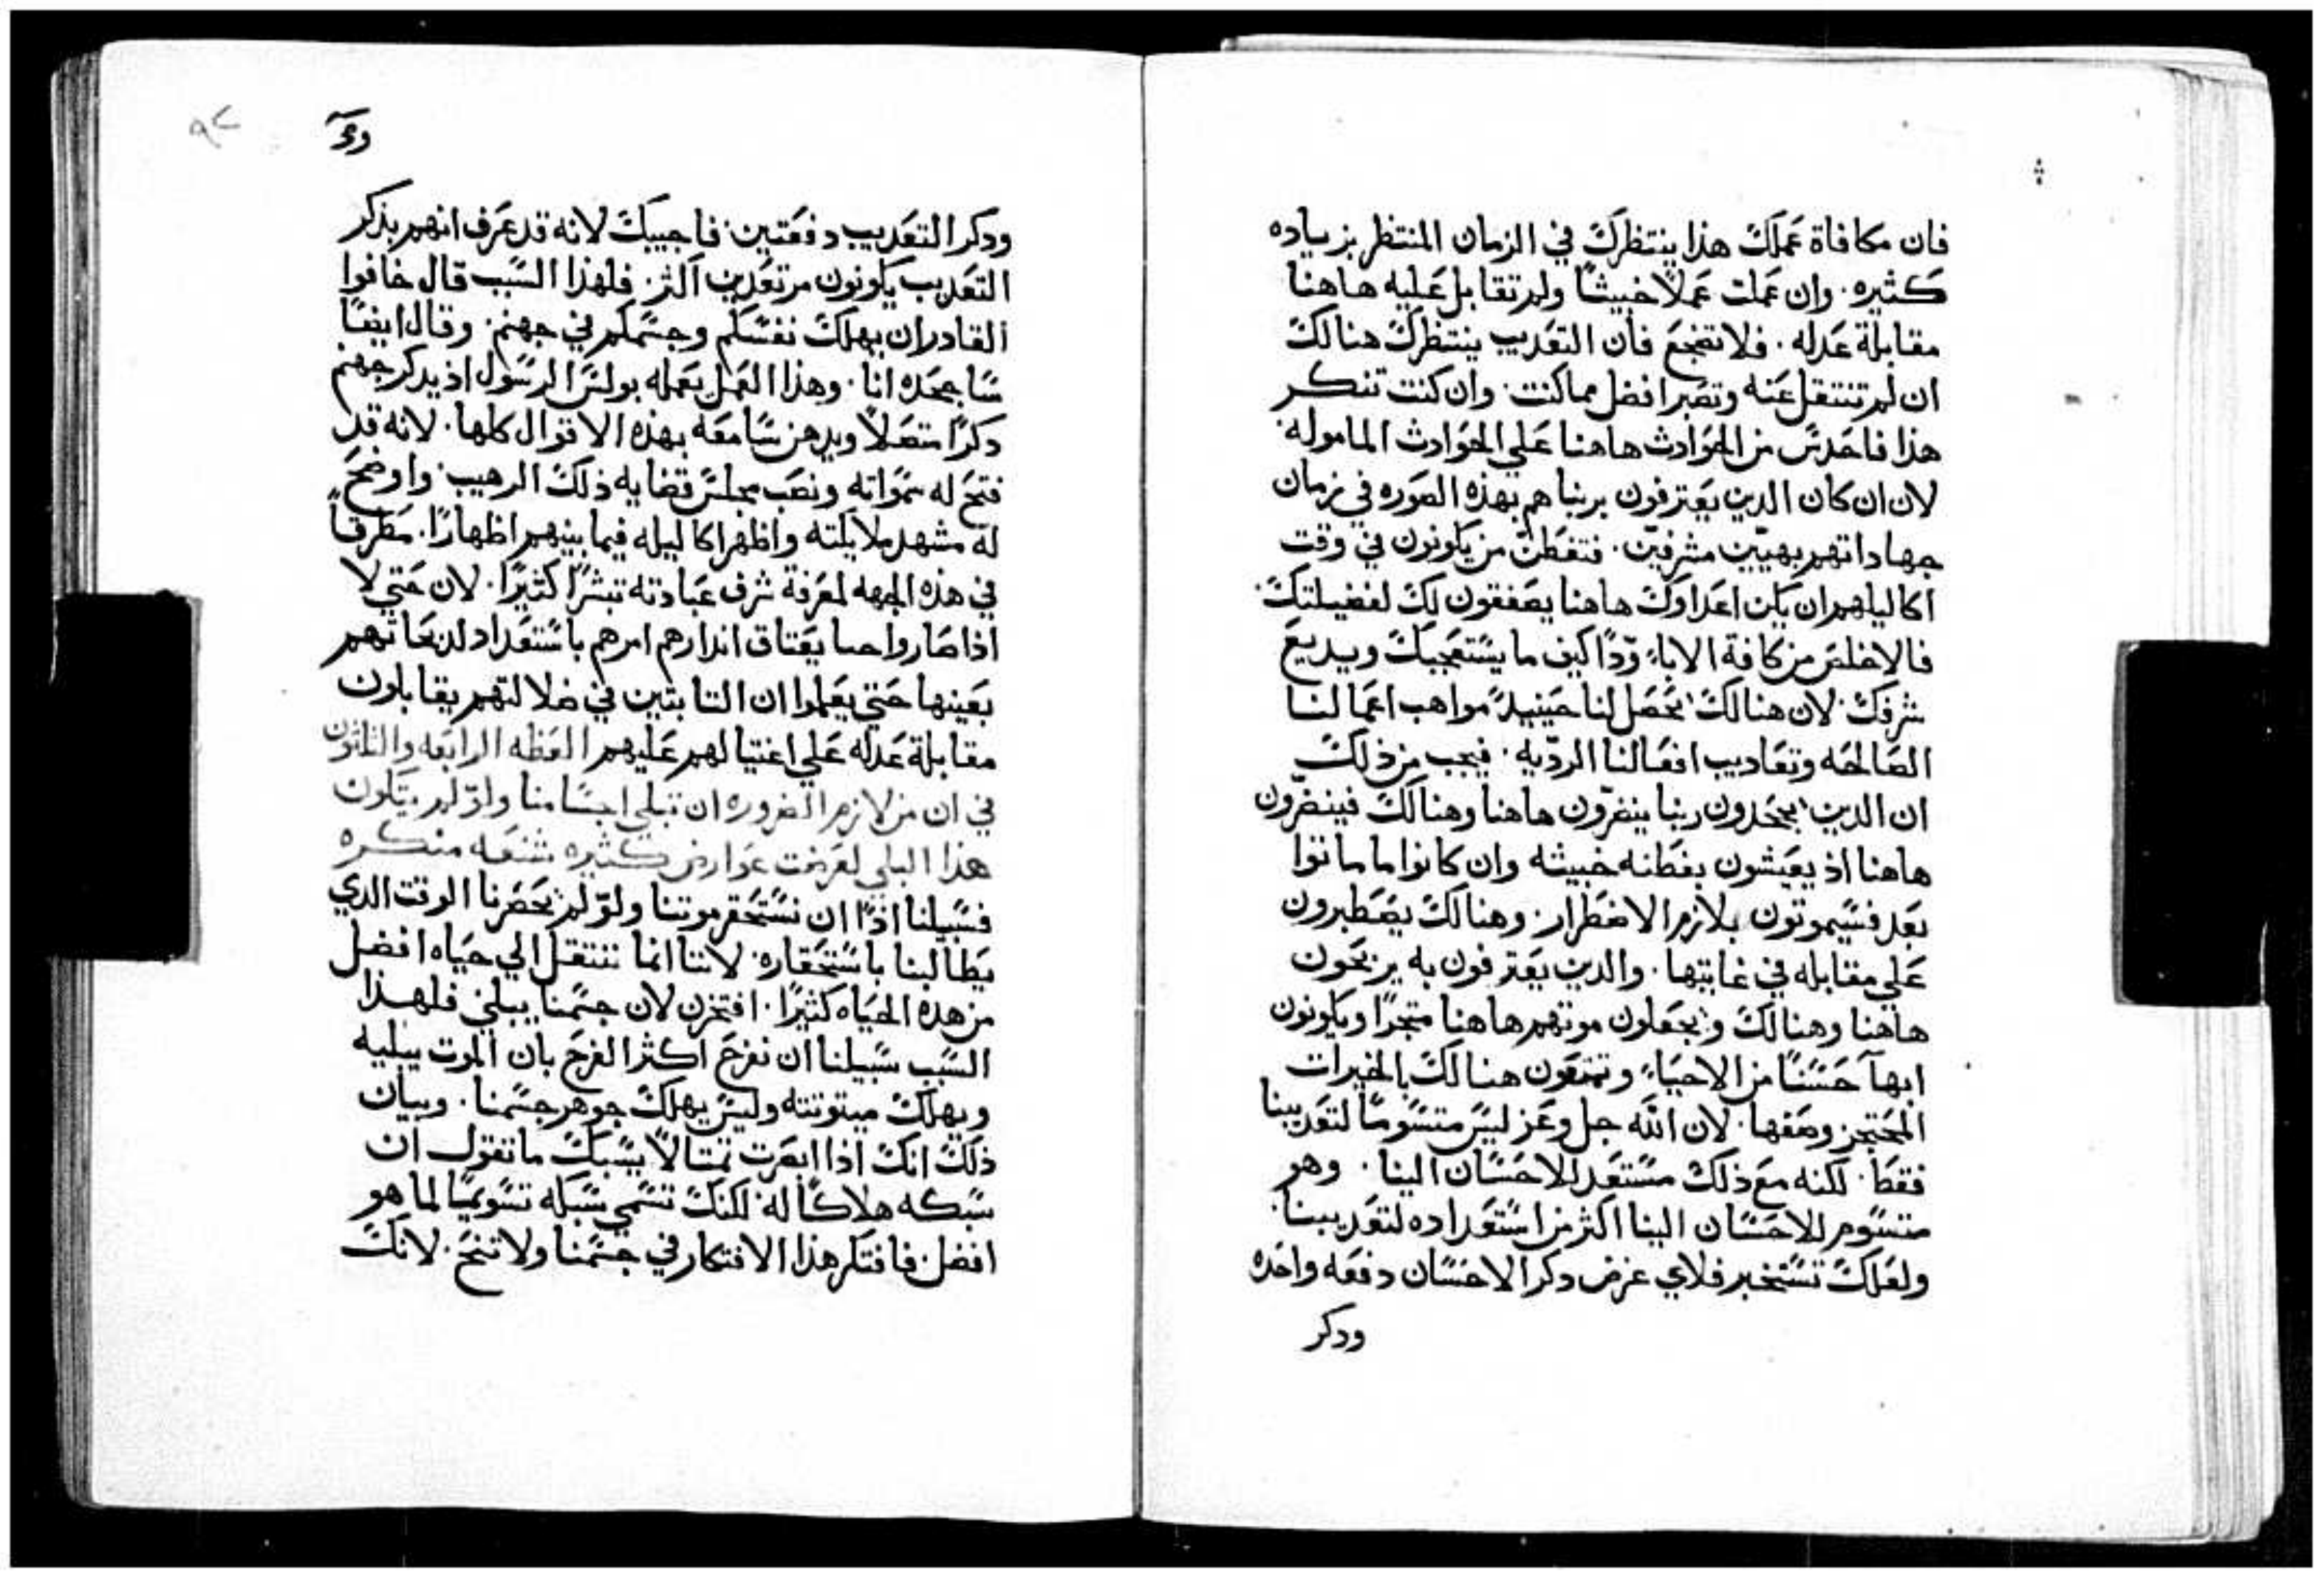 فان مكافاة عملك هذا ينتظرك في الزمان المنتظر بزياده
كثيره. وان عملت عملاً خبيثاً ولم تقابل عليه هاهنا
مقابلة عدله. فلا تضجع فان التعديب ينتظرك هنالك
ان لم تنتقل عنه وتصير افضل مما كنت. وان كنت تنكر
هذا فاحدس من الحوادث هاهنا علي الحوادث المامولة.
لان ان كان الدين يعترفون بربنا هم بهذه الصوره في زمان
جهاداتهم بهيّين مشرفين. فتفطن من يكونون في وقت
اكاليلهم ان يكن اعداوك هاهنا يصفقون لك لفضيلتك.
فالاخلص من كافة الاباء ودّاً كيف ما يستعجبك ويديع
شرفك. لان هنالك يحصل لنا حينيدً مواهب اعمالنا
الصالحه وتعاديب افعالنا الرديه. فيجب من ذلك
ان الدين يجحدون ربنا ينضرّون هاهنا وهنالك فينضرّون
هاهنا اذ يعيشون بفطنه خبيثه وان كانوا ما ماتوا
بعد فسيموتون بلازم الاضطرار. وهنالك يصطبرون
علي مقابله في غايتها. والدين يعترفون به يربحون
هاهنا وهنالك ويجعلون موتهم هاهنا متجراً ويكونون
ابهآ حسناً من الاحياء. وتمتعون هنالك بالخيرات
المحتجز وصفها. لان الله جل وعز ليس متسوماً لتعديبنا
فقط. لكنه مع ذلك مستعد للاحسان الينا. وهو
متسوم للاحسان الينا اكثر من استعداده لتعديبنا.
ولعلك تستخبر فلاي غرض دكر الاحسان دفعه واحده
ودكر
ودكر التعديب دفعتين. فاجيبك لانه قد عرف انهم بذكر
التعديب يكونون مرتعدين اكثر. فلهذا السبب قال خافوا
القادر ان يهلك نفسكم وجسمكم في جهنم. وقال ايضاً
ساجحده انا. وهذا العمل يعمله بولس الرسول اذ يدكر جهنم
دكراً متصلاً ويرهن سامعه بهذه الاقوال كلها. لانه قد
فتح له سمواته ونصب مجلس قضايه ذلك الرهيب. واوضح
له مشهد ملايكته واظهر اكاليله فيما بينهم اظهاراً. مطرقاً
في هذه الجهه لمعرفة شرف عبادته تبشراً كثيراً. لان حتي لا
اذا صاروا يعتاق اندارهم امرهم باستعداد لدعاتهم
بعينها حتي يعلموا ان التابتين في ضلالتهم يقابلون
مقابلة عدله علي اغتيالهم عليهم العظه الرابعه والثلثون
في ان من لازم الضروره ان تبلي اجسامنا ولو لم يكون
هذا البلي لعرضت عوارض كثيره شنعه منكره
فسبيلنا اذاً ان نستحقر موتنا ولو لم يحضرنا الوقت الدي
يطالبنا باستحقاره. لاننا انما ننتقل الي حياه افضل
من هده الحياه كثيراً. افتحزن لان جسمنا يبلي فلهذا
السبب سبيلنا ان نفرح اكثر الفرح بان الموت يبليه
ويهلك ميتوتته وليس يهلك جوهر جسمنا. وبيان
ذلك انك اذا ابصرت تمتالاً يسبك ما تقول ان
سبكه هلاكاً له. لكنك تسمي سبكه تسويماً لما هو
افضل. فافتكر هذا الافتكار في جسمنا ولا تنح. لانك